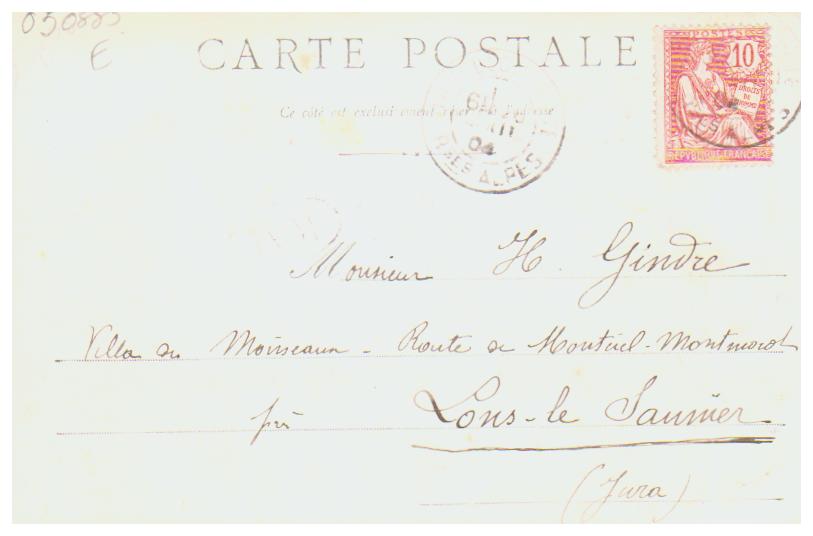 050885
E
CARTE POSTALE
POSTES
10
DROITS
DE
REPUBLIQUE FRANÇAISE
Ce côté est exclusivement réservé à l'adresse
19
04
BSES ALPES
Monsieur H. Gindre
Villa du Moinseaux - Route de Montciel-Montmorot
près Lons-le Saunier
(Jura)